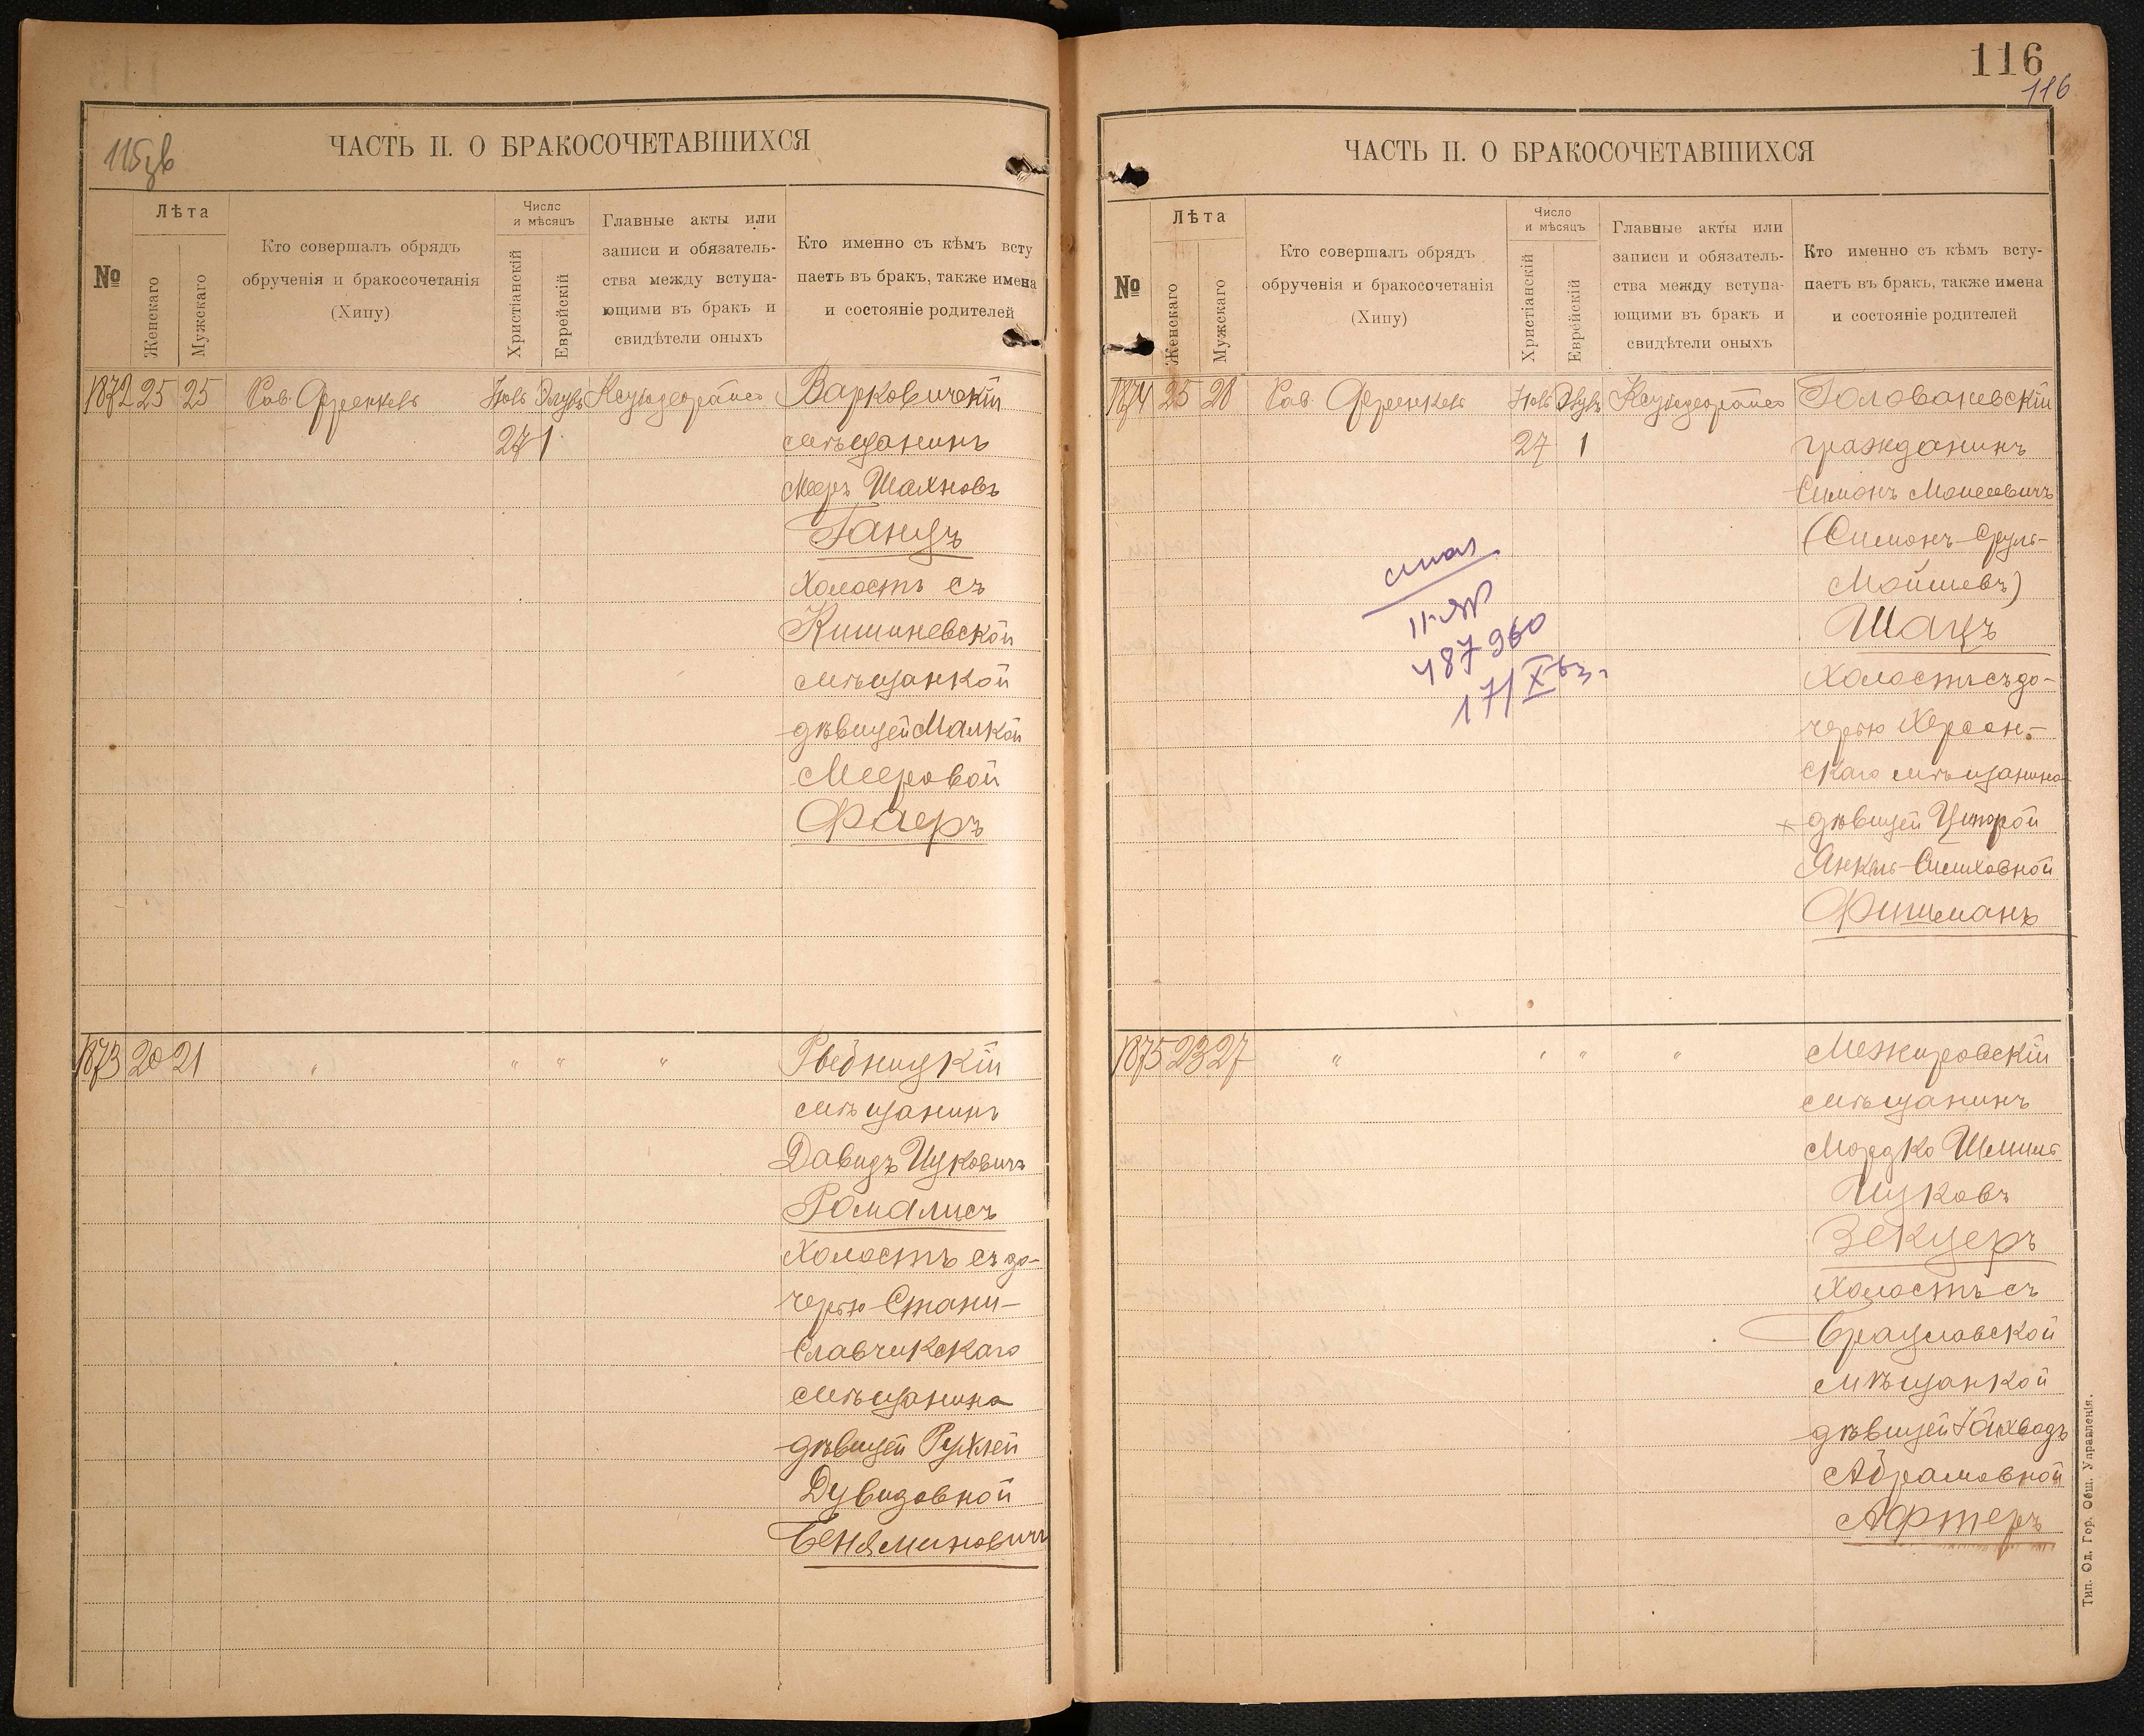 115 зв
ЧАСТЬ II. О БРАКОСОЧЕТАВШИХСЯ
№
Лѣта
Женскаго
Мужскаго
Кто совершалъ обрядъ
обрученія и бракосочетанія
(Хипу)
Число
и мѣсяцъ
Христіанскій
Еврейскій
Главные акты или
записи и обязатель-
ства между вступа-
ющими въ бракъ и
свидѣтели оныхъ
Кто именно съ кѣмъ всту
паетъ въ бракъ, также имена
и состояніе родителей
1872 25 25 Рав. Френкель
27 1
Варковичскій
мѣщанинъ
Мееръ Шахновъ
Ганцъ
холостъ съ
Кишиневской
мѣщанкой
дѣвицей Малкой
Мееровой
Фаеръ
1873 20 21 " " " "
Рыбницкій
мѣщанинъ
Давидъ Ицковичъ
Ромалисъ
холостъ съ до-
черью Стани-
славчикскаго
мѣщанина
дѣвицей Рухлей
Дувидовной
Беняминовичъ
116
116
ЧАСТЬ II. О БРАКОСОЧЕТАВШИХСЯ
№
Лѣта
Женскаго
Мужскаго
Кто совершалъ обрядъ
обрученія и бракосочетанія
(Хипу)
Число
и мѣсяцъ
Христіанскій
Еврейскій
Главные акты или
записи и обязатель-
ства между вступа-
ющими въ бракъ и
свидѣтели оныхъ
Кто именно съ кѣмъ всту-
паетъ въ бракъ, также имена
и состояніе родителей
1874 25 28 Рав. Френкель
27 1
Голованевскій
гражданинъ
Симонъ Моисеевичъ
(Симонъ-Сруль-
Мойшевъ)
Шацъ
холостъ съ до-
черью Херсон-
скаго мѣщанина
дѣвицей Ципорой
Янкель-Симховной
Фишманъ
487960
17/X
1875 23 27 " " " "
Межировскій
мѣщанинъ
Мордко Шмиль
Ицковъ
Зекцеръ
холостъ съ
Брацлавской
мѣщанкой
дѣвицей
Абрамовной
Афтеръ
Тип. Од. Гор. Общ. Управленія.